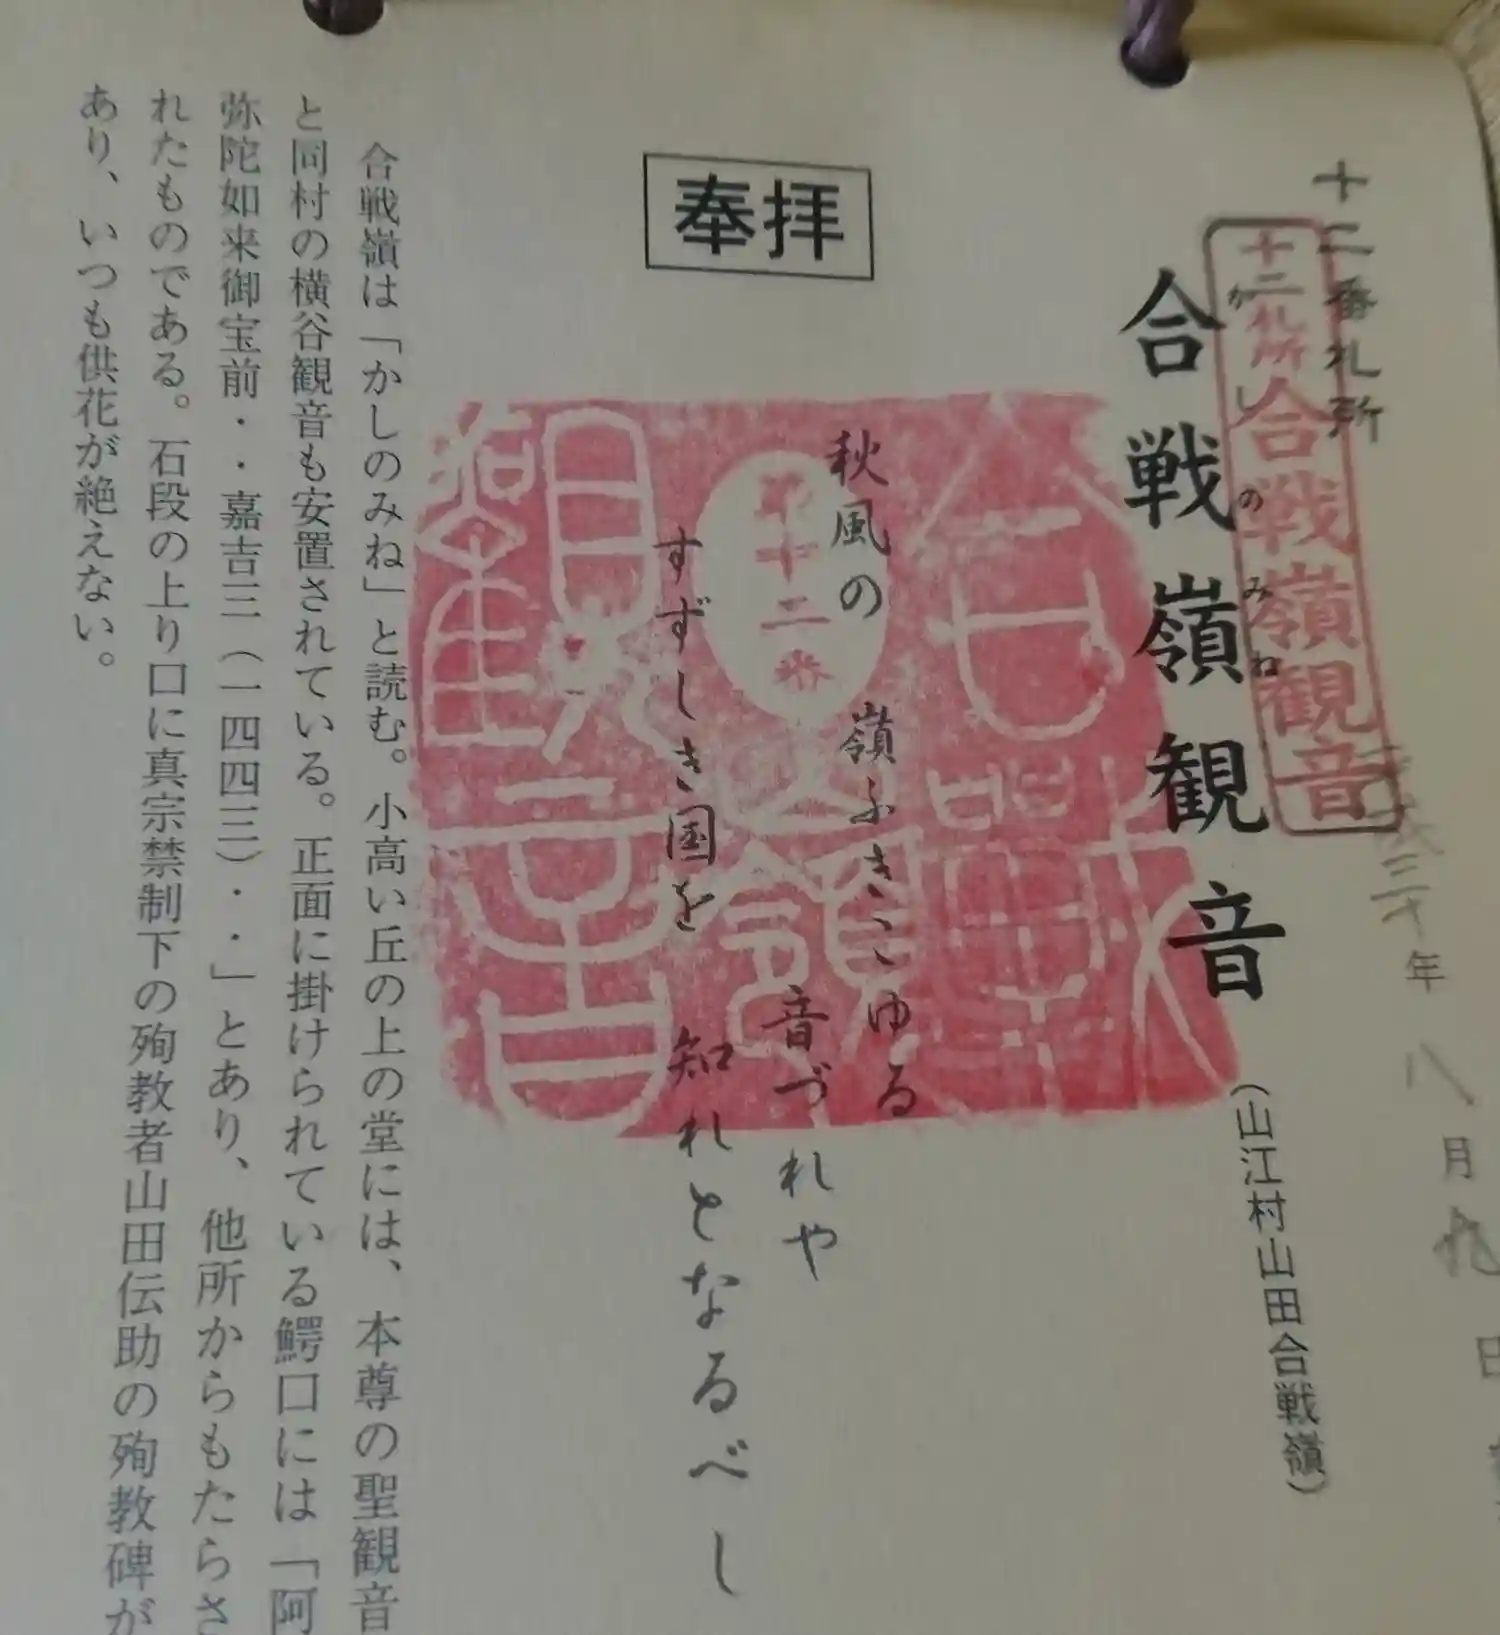 三十年八月九日
十二番札所
十二札所合戦嶺観音
かしのみね
合戦嶺観音
(山江村山田合戦嶺)
奉拝
第十二番
合戦嶺観音
秋風の 嶺ふきこゆる
音づれや
すずしき国を 知れとなるべし
合戦嶺は「かしのみね」と読む。小高い丘の上の堂には、本尊の聖観音
と同村の横谷観音も安置されている。正面に掛けられている鰐口には「阿
弥陀如来御宝前・・嘉吉三(一四四三)・・」とあり、他所からもたらさ
れたものである。石段の上り口に真宗禁制下の殉教者山田伝助の殉教碑が
あり、いつも供花が絶えない。